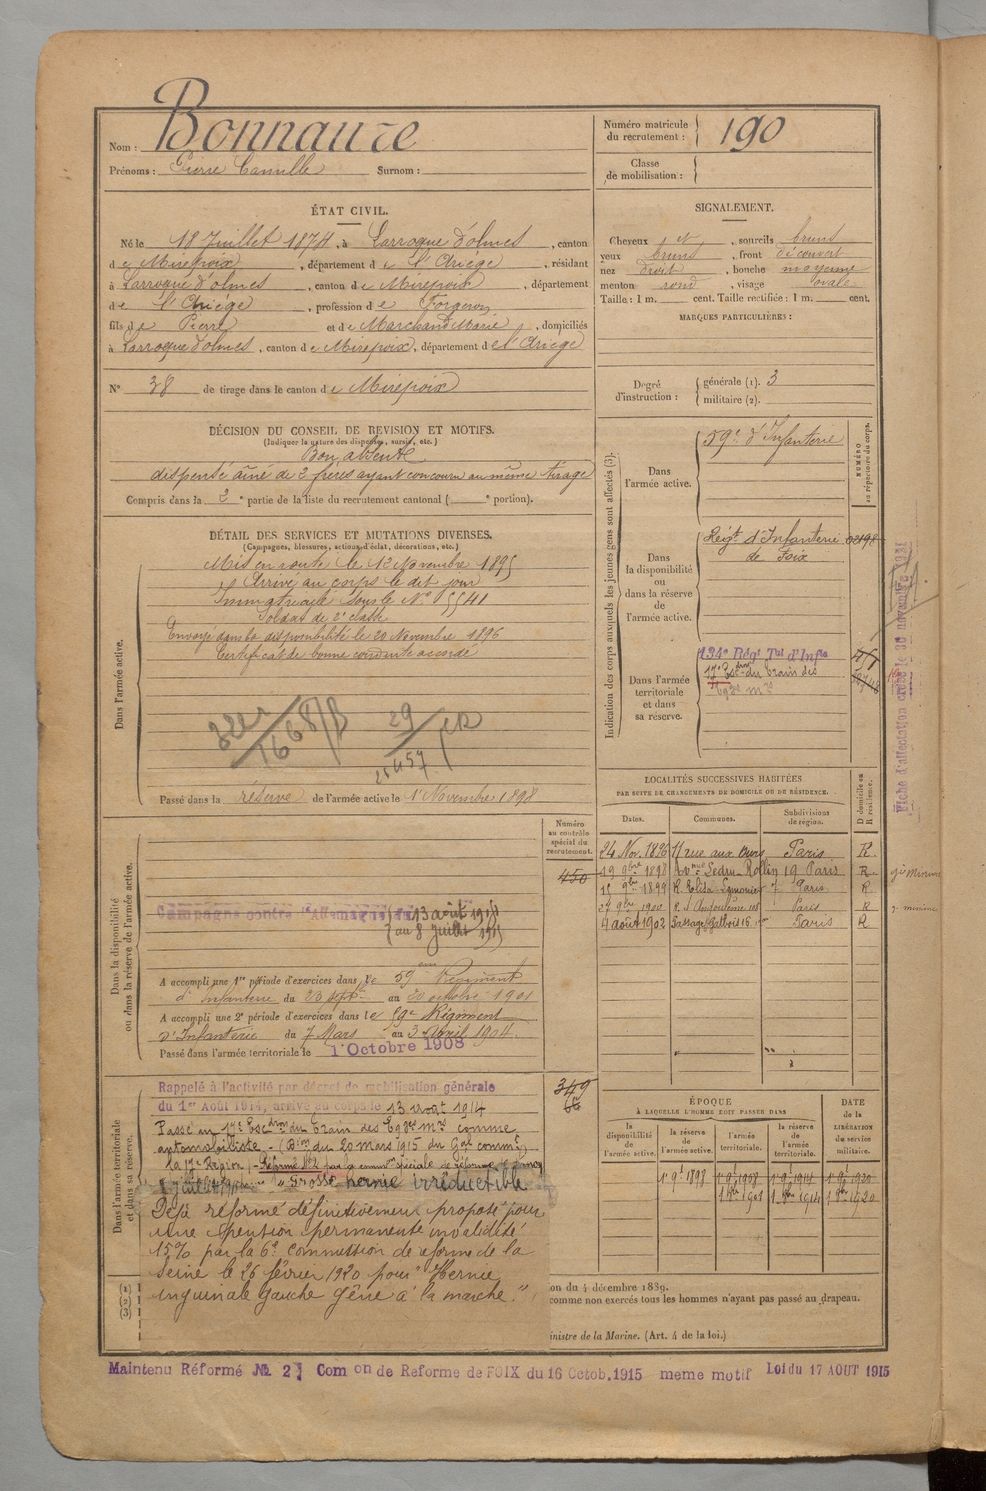 Nom : Bonnaure
Prénoms : Pierre Camille Surnom :
Numéro matricule du recrutement : 190
Classe de mobilisation :
ÉTAT CIVIL.
Né le 18 Juillet 1874, à Larroque d'olmes, canton
de Mirepoix, département de l'Ariège, résidant
à Larroque d'olmes, canton de Mirepoix, département
de l'Ariége, profession de Forgeron
fils de Pierre et de Marchand Marie, domiciliés
à Larroque d'olmes, canton de Mirepoix, département de l'Ariège
N° 38 de tirage dans le canton de Mirepoix
SIGNALEMENT.
Cheveux et, sourcils bruns
yeux bruns, front découvert
nez droit, bouche moyenne
menton rond, visage ovale
Taille : 1 m. cent. Taille rectifiée : 1 m. cent.
MARQUES PARTICULIÈRES :
Degré d'instruction : générale (1). 3
militaire (2).
DÉCISION DU CONSEIL DE REVISION ET MOTIFS.
(Indiquer la nature des dispenses, sursis, etc.)
Bon absent
dispensé aîné de 2 frères ayant concouru au même tirage
Compris dans la 2e partie de la liste du recrutement cantonal ( e portion).
DÉTAIL DES SERVICES ET MUTATIONS DIVERSES.
(Campagnes, blessures, actions d'éclat, décorations, etc.)
Dans l'armée active.
Mis en route le 12 Novembre 1895
Arrivé au corps le dit jour
Immatriculé sous le N° 5541
Soldat de 2e classe
Envoyé dans la disponibilité le 20 Novembre 1896
Certificat de bonne conduite accordé
Passé dans la réserve de l'armée active le 1 Novembre 1898
Indication des corps auxquels les jeunes gens sont affectés (3).
NUMÉRO au répertoire du corps.
Dans l'armée active.
59e d'Infanterie
Dans la disponibilité ou dans la réserve de l'armée active.
Régt d'Infanterie
de Foix
Dans l'armée territoriale et dans sa réserve.
134e Régt Tal d'Infie
17e Escdron du Train des
Eqges mres
Fiche d'affectation créée le 30 novembre
Dans la disponibilité ou dans la réserve de l'armée active.
Numéro au contrôle spécial du recrutement.
450
Campagne contre l'Allemagne du 13 août 1914
au 8 Juillet 1915
A accompli une 1re période d'exercices dans le 59ème Régiment
d'Infanterie du 23 septre au 20 octobre 1901
A accompli une 2e période d'exercices dans le 59e Régiment
d'Infanterie du 7 Mars au 3 Avril 1904
Passé dans l'armée territoriale le 1 Octobre 1908
LOCALITÉS SUCCESSIVES HABITÉES
PAR SUITE DE CHANGEMENTS DE DOMICILE OU DE RÉSIDENCE.
Dates. Communes. Subdivisions de région. D domicile ou R résidence.
24 Nov. 1896 11 rue aux Ours Paris R.
19 9bre 1898 Avnue Ledru Rollin 19 Paris R
15 9bre 1899 R. Elisa Lemonier 7 Paris R
27 9bre 1900 Paris R
4 août 1902 Passage Gatbois 16 Paris R
Dans l'armée territoriale et dans sa réserve.
Rappelé à l'activité par décret de mobilisation générale
du 1er Août 1914, arrivé au corps le 13 août 1914
Passé au 17e Escdron du Train des Eqges mres comme
automobiliste - (Don du 20 mars 1915 du Gal commt
la 17e Région) - Réformé N°2 par la common spéciale de réforme
"Grosse hernie irréductible
Déjà réformé définitivement proposé pour
une pension permanente invalidité
15% par la 6e commission de réforme de la
Seine le 26 février 1920 pour "Hernie
inguinale gauche gêne à la marche."
349
ÉPOQUE
À LAQUELLE L'HOMME DOIT PASSER DANS
la disponibilité de l'armée active. la réserve de l'armée active. l'armée territoriale. la réserve de l'armée territoriale.
DATE de la LIBÉRATION du service militaire.
1er 9bre 1898 1er 9bre 1908 1er 9bre 1914 1er 9bre 1920
(1)
(2)
(3)
on du 4 décembre 1889.
comme non exercés tous les hommes n'ayant pas passé au drapeau.
inistre de la Marine. (Art. 4 de la loi.)
Maintenu Réformé No. 2 Com on de Reforme de FOIX du 16 Octob. 1915 meme motif Loi du 17 AOUT 1915